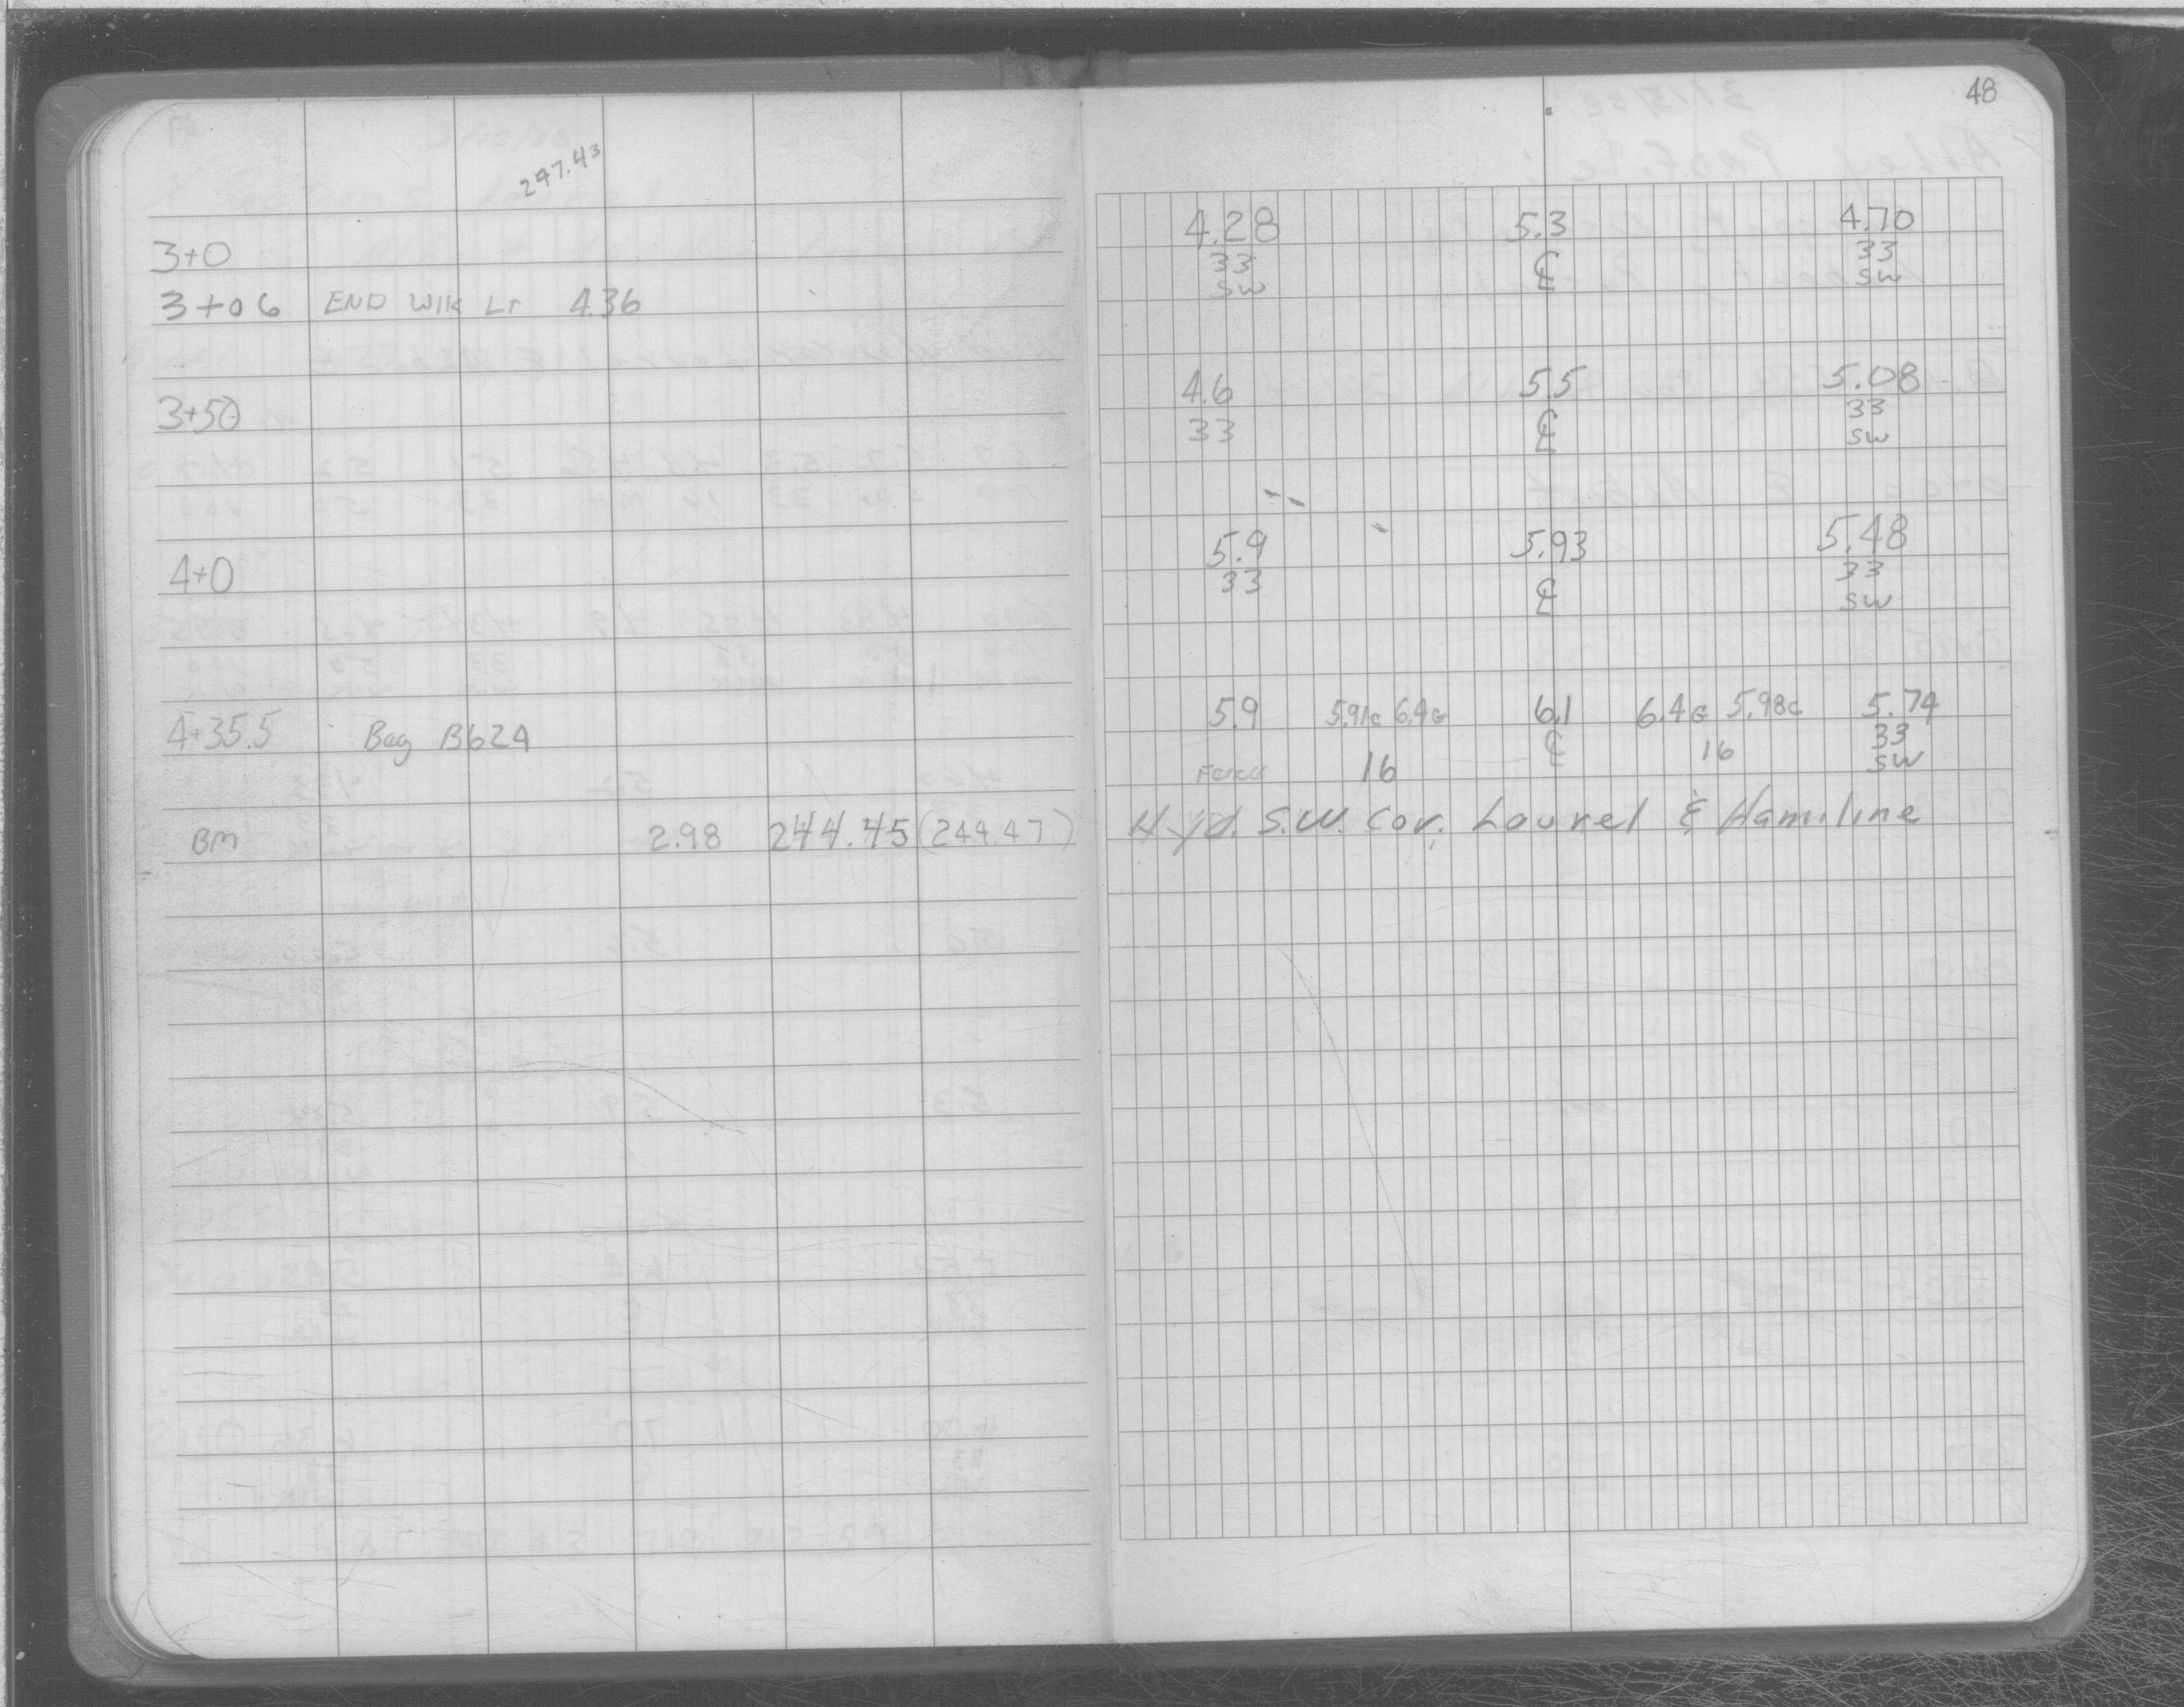 48
247.43
3+0 4.28 5.3 4.70
33 ℄ 33
SW SW
3+06 END WlK LT 4.36
3+50 4.6 5.5 5.08
33 ℄ 33
SW
4+0 5.9 5.93 5.48
33 ℄ 33
SW
4+35.5 Beg B624 5.9 5.91c 6.4G 6.1 6.4G 5.98c 5.74
Fence 16 ℄ 16 33
SW
BM 2.98 244.45 (244.47) Hyd. S.W. Cor. Laurel & Hamiline